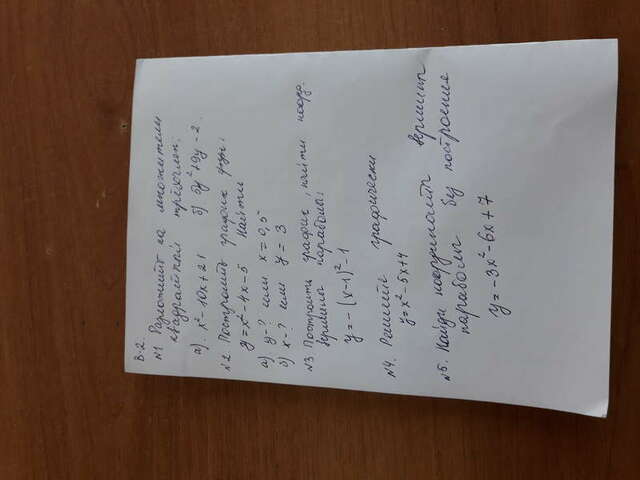 В-2.
№1 Разложить на множители
квадратный трёхчлен:
а). x²-10x+21 б) 9y²+9y-2.
№2 Построить график функ:
y=x²-4x-5 Найти
а) y-? если x=0,5
б) x-? если y=3
№3 Построить график, найти коорд.
вершины параболы:
y=-(x-1)²-1
№4. Решить графически
y=x²-5x+4
№5. Найди координаты вершин
параболы без построения
y=-3x²-6x+7